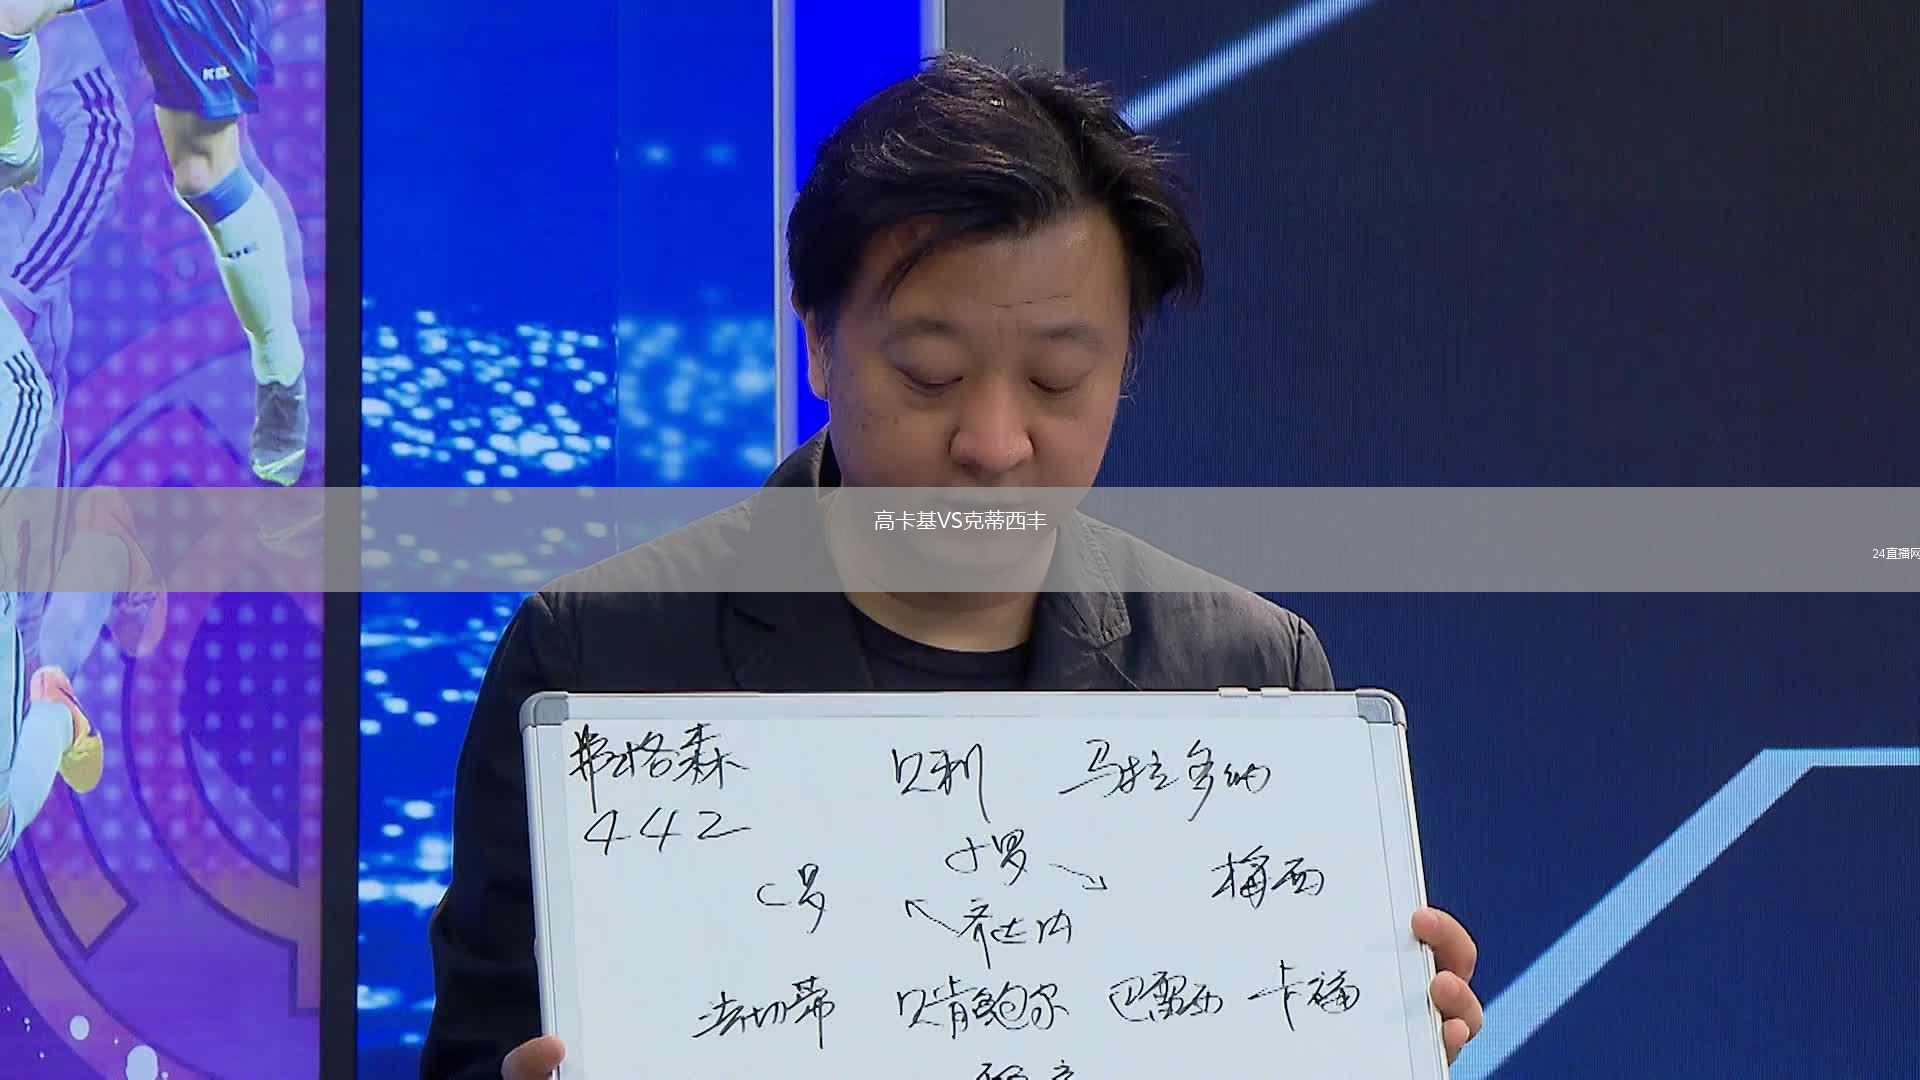 高卡基VS克蒂西丰
24直播网
弗格森 贝利 马拉多纳
442
大罗
C罗 梅西
齐达内
法切蒂 贝肯鲍尔 巴雷西 卡福